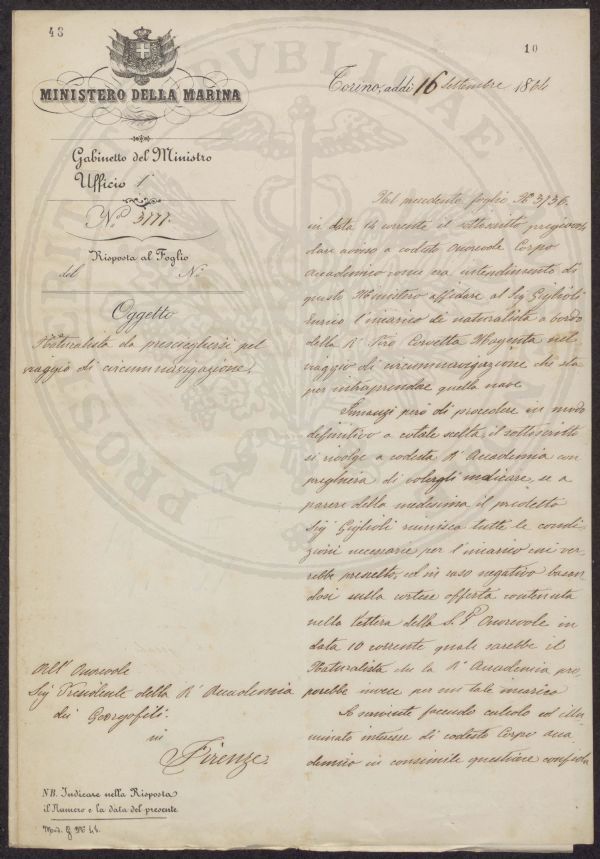 48
10
MINISTERO DELLA MARINA
Gabinetto del Ministro
Ufficio 1°
N.° 3177.
Risposta al Foglio
del N.°
Oggetto
Naturalista da prescegliersi pel
viaggio di circumnavigazione.
Torino, addì 16 Settembre 1864
Nel precedente foglio N° 3136.
in data 14 corrente il sottoscritto pregiavasi
dare avviso a codesto Onorevole Corpo
Accademico come era intendimento di
questo Ministero affidare al Sig Giglioli
Enrico l'incarico di naturalista a bordo
della R° Piro Corvetta Magenta nel
viaggio di circumnavigazione che sta
per intraprendere quella nave
Innanzi però di procedere in modo
definitivo a cotale scelta, il sottoscritto
si rivolge a codesta R° Accademia con
preghiera di volergli indicare, se a
parere della medesima il predetto
Sig Giglioli riunisca tutte le condi
zioni necessarie per l'incarico cui ver
rebbe prescelto, ed in caso negativo basan
dosi sulla cortese offerta contenuta
nella lettera della S. V. Onorevole in
data 10 corrente quale sarebbe il
Naturalista che la R° Accademia pro
porrebbe invece per un tale incarico
Lo scrivente facendo calcolo ed illu
minato interesse di codesto Corpo acca
demico in consimile questione confida
All' Onorevole
Sig Presidente della R° Accademia
dei Georgofili.
in
Firenze
NB. Indicare nella Risposta
il Numero e la data del presente
Mod. G N° 44.